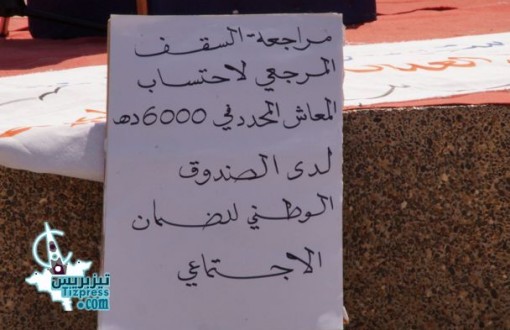 مراجعة السقف
المرجعي لاحتساب
المعاش المحدد في 6000 دهـ
لدى الصندوق
الوطني للضمان
الاجتماعي
تيزبريس
Tizpress
.com